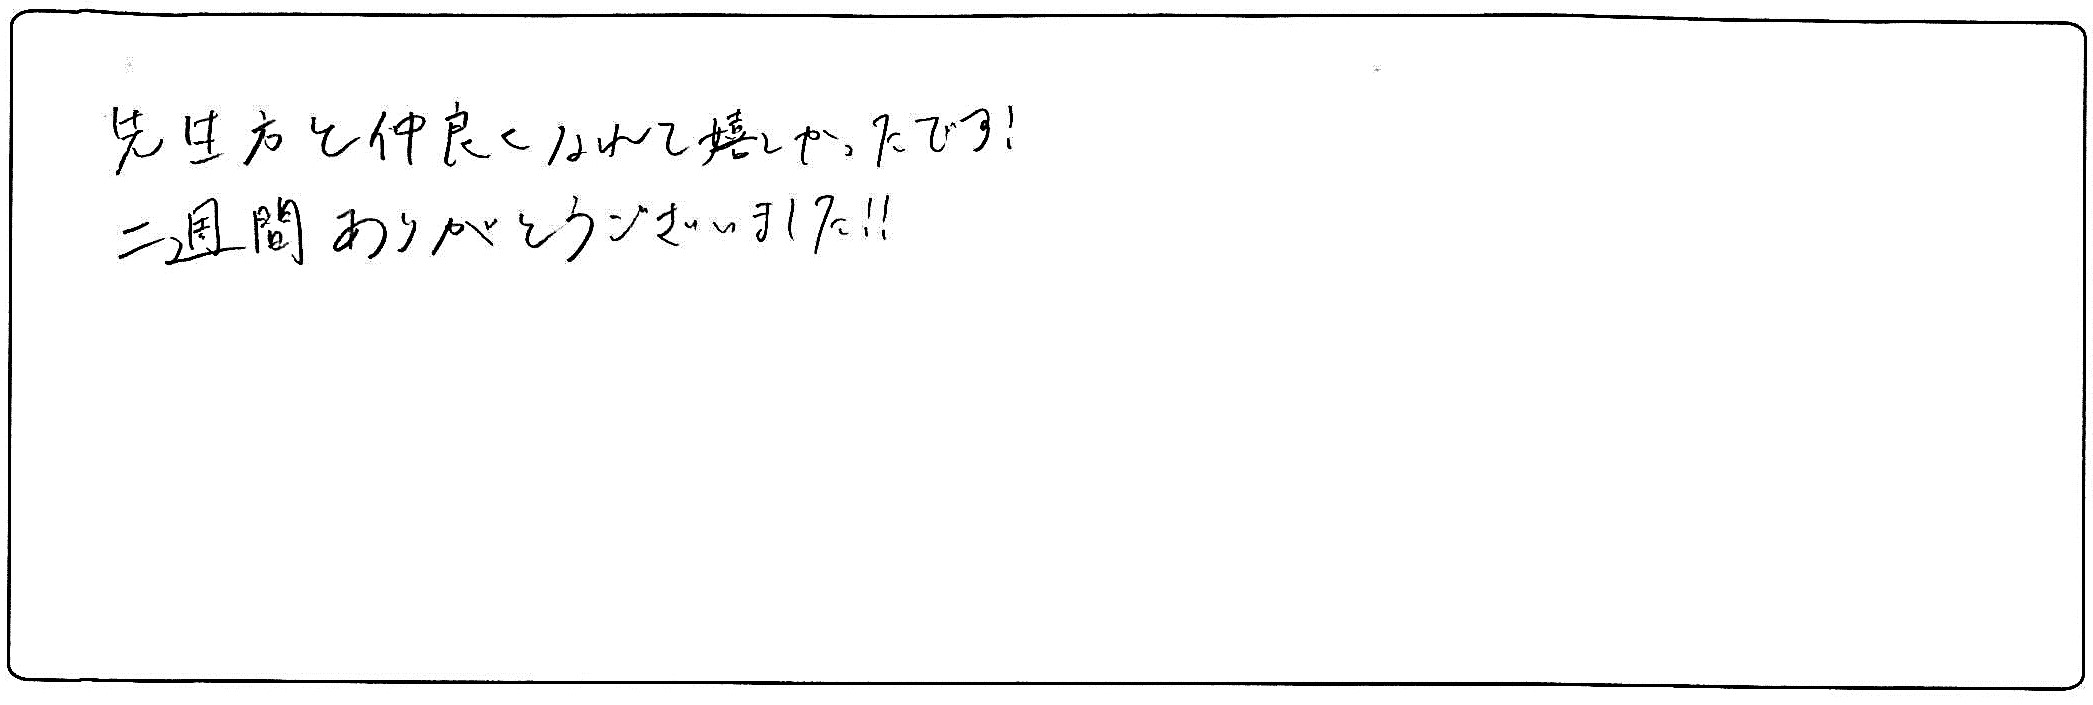 先生方と仲良くなれて嬉しかったです!
二週間ありがとうございました!!